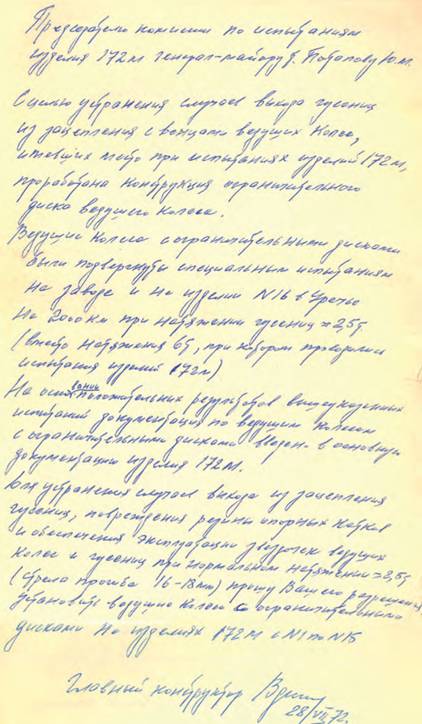 Председателю комиссии по испытаниям
изделия 172М генерал-майору т. Потапову Ю.М.
С целью устранения случаев выхода гусениц
из зацепления с венцами ведущих колес,
имевших место при испытаниях изделий 172М,
проработана конструкция ограничительного
диска ведущего колеса.
Ведущие колеса с ограничительными дисками
были подвергнуты специальным испытаниям
на заводе и на изделии N16 в
на 2000 км при натяжении гусениц ≈ 2,5т
(вместо натяжения 6т, при котором проводились
испытания изделий 172М)
На основании положительных результатов вышеуказанных
испытаний документация по ведущим колесам
с ограничительными дисками введена в основную
документацию изделия 172М.
Для устранения случаев выхода из зацепления
гусениц, повреждения резины опорных катков
и обеспечения эксплуатации ведущих
колес и гусениц при нормальном натяжении ≈ 2,5т
(стрела прогиба 16-18мм) прошу Вашего разрешения
установить ведущие колеса с ограничительными
дисками на изделиях 172М с N1 по N15
Главный конструктор
28/VII 72.